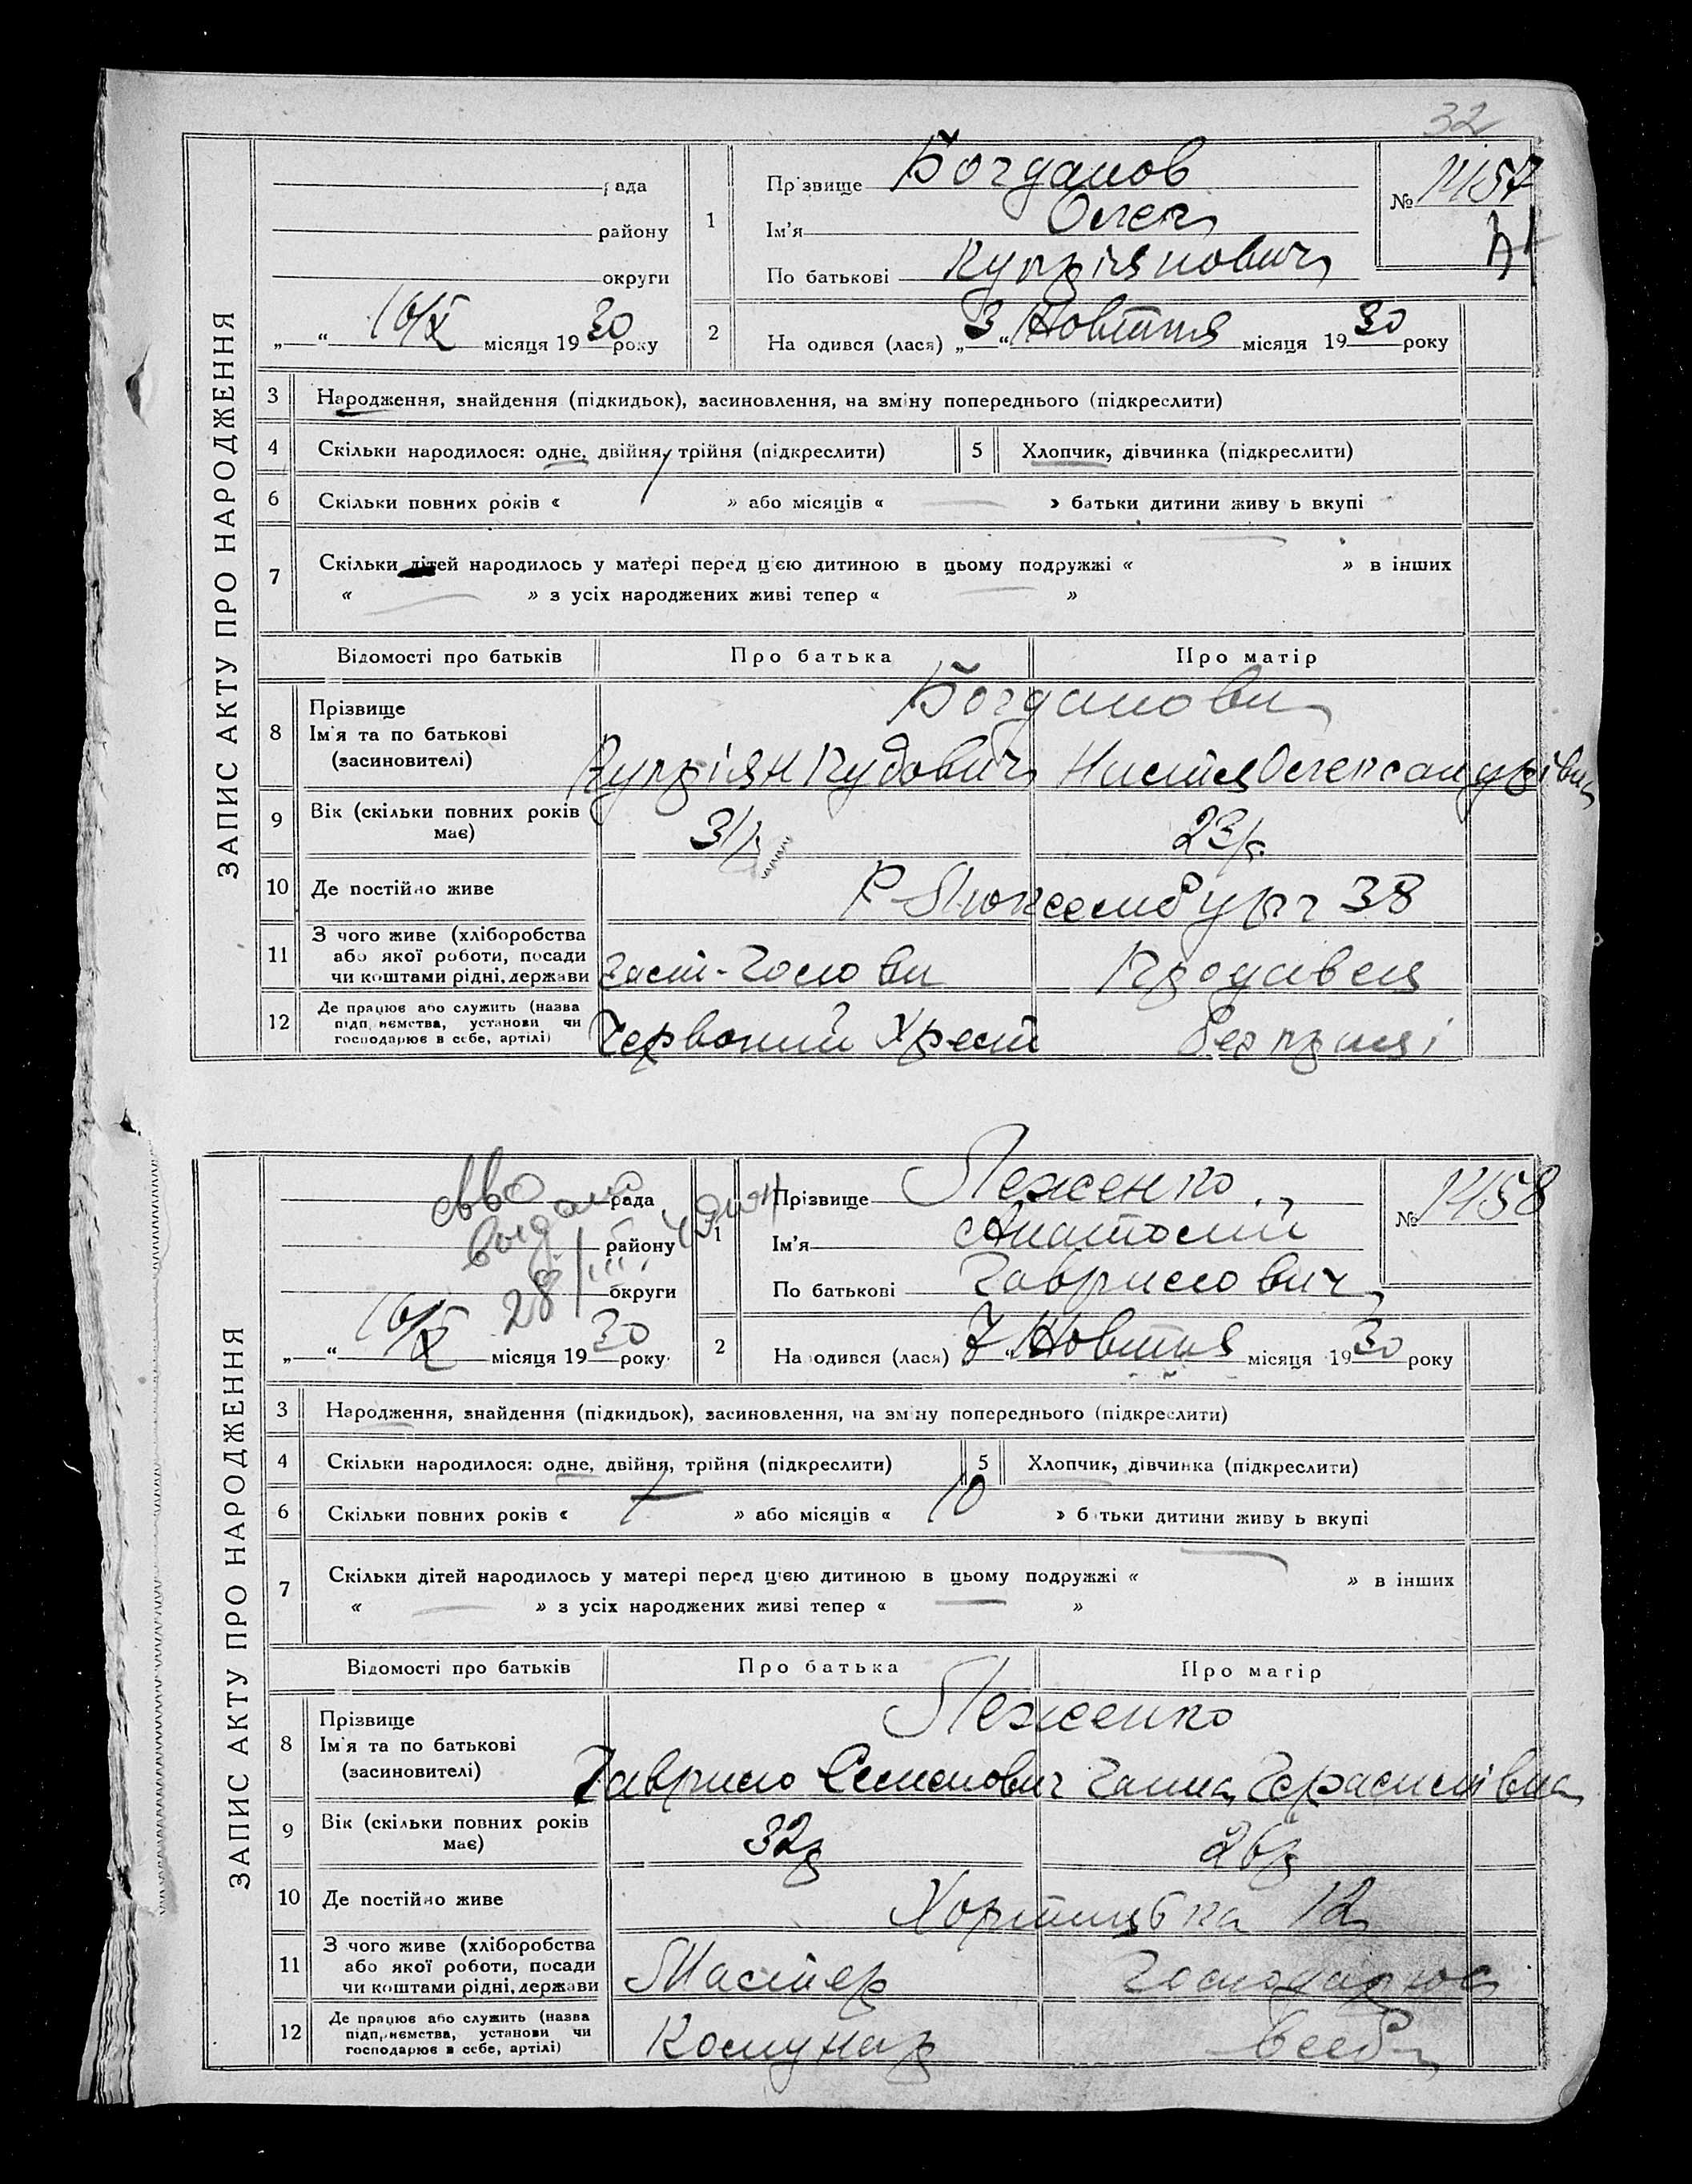 32
ЗАПИС АКТУ ПРО НАРОДЖЕННЯ
рада
району
округи
„ “ 10/X місяця 1930 року
1
Прізвище Богданов
Ім'я Олег
По батькові Купріянович
№ 1457
2
На одився (лася) „3“ Жовтня місяця 1930 року
3 Народження, знайдення (підкидьок), засиновлення, на зміну попереднього (підкреслити)
4 Скільки народилося: одне, двійня, трійня (підкреслити) 5 Хлопчик, дівчинка (підкреслити)
6 Скільки повних років « 1 » або місяців « — » батьки дитини живу ь вкупі
7 Скільки дітей народилось у матері перед цією дитиною в цьому подружжі « — » в інших
« — » з усіх народжених живі тепер « — »
Відомості про батьків Про батька Про матір
8 Прізвище
Ім'я та по батькові
(засновителі)
Богданови
Купріян Настя Олександрівна
9 Вік (скільки повних років має) 31р 23р.
10 Де постійно живе Р. Люксембург 38
11 З чого живе (хліборобства
або якої роботи, посади
чи коштами рідні, держави
Заст-Голови Продавець
12 Де працює або служить (назва
підприємства, установи чи
господарює в себе, артілі)
Червоний Хрест без праці
ЗАПИС АКТУ ПРО НАРОДЖЕННЯ
рада
району
округи
28/III
„ “ 10/X місяця 1930 року
1
Прізвище Леженко
Ім'я Анатолій
По батькові Гаврилович
№ 1458
2
На одився (лася) 7 “ Жовтня місяця 1930 року
3 Народження, знайдення (підкидьок), засиновлення, на зміну попереднього (підкреслити)
4 Скільки народилося: одне, двійня, трійня (підкреслити) 5 Хлопчик, дівчинка (підкреслити)
6 Скільки повних років « » або місяців « 10 » б тьки дитини живу ь вкупі
7 Скільки дітей народилось у матері перед цією дитиною в цьому подружжі « — » в інших
« — » з усіх народжених живі тепер « — »
Відомості про батьків Про батька Про матір
8 Прізвище
Ім'я та по батькові
(засиновителі)
Леженко
Гаврило Семенович Ганна Герасимівна
9 Вік (скільки повних років має) 32р 26р
10 Де постійно живе Хортицька 12
11 З чого живе (хліборобства
або якої роботи, посади
чи коштами рідні, держави
Мастер Господарює
12 Де працює або служить (назва
підприємства, установи чи
господарює в себе, артілі)
Комунар